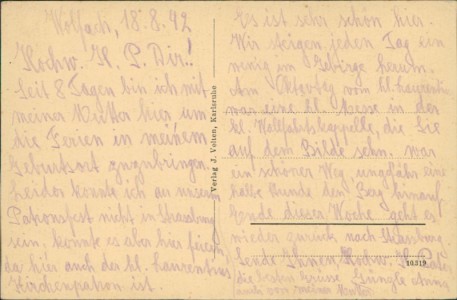 Wolfach, 18.8.42
Hochw. H. P. Dir!
Seit 8 Tagen bin ich mit
meiner Mutter hier um
die Ferien in meinem
Geburtsort zuzubringen.
Leider konnte ich an unserm
Patronsfest nicht in Strassburg
sein, konnte es aber hier feiern,
da hier auch der hl. Laurentius
Kirchenpatron ist.
Verlag J. Velten, Karlsruhe
Es ist sehr schön hier.
Wir steigen jeden Tag ein
wenig im Gebirge herum.
Am Oktavtag vom hl. Laurentius
war eine hl. Messe in der
kl. Wallfahrtskappelle, die Sie
auf dem Bilde sehn. war
ein schöner Weg, ungefähr eine
halbe Stunde den Berg hinauf
Ende dieser Woche geht es
wieder zurück nach Strassburg.
Sende Ihnen Hochw. H. Pater
die besten Grüsse
auch von meiner Mutter
10319